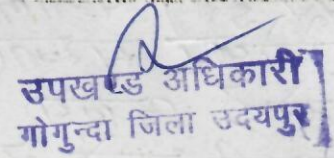 उपखण्ड अधिकारी
गोगुन्दा जिला उदयपुर